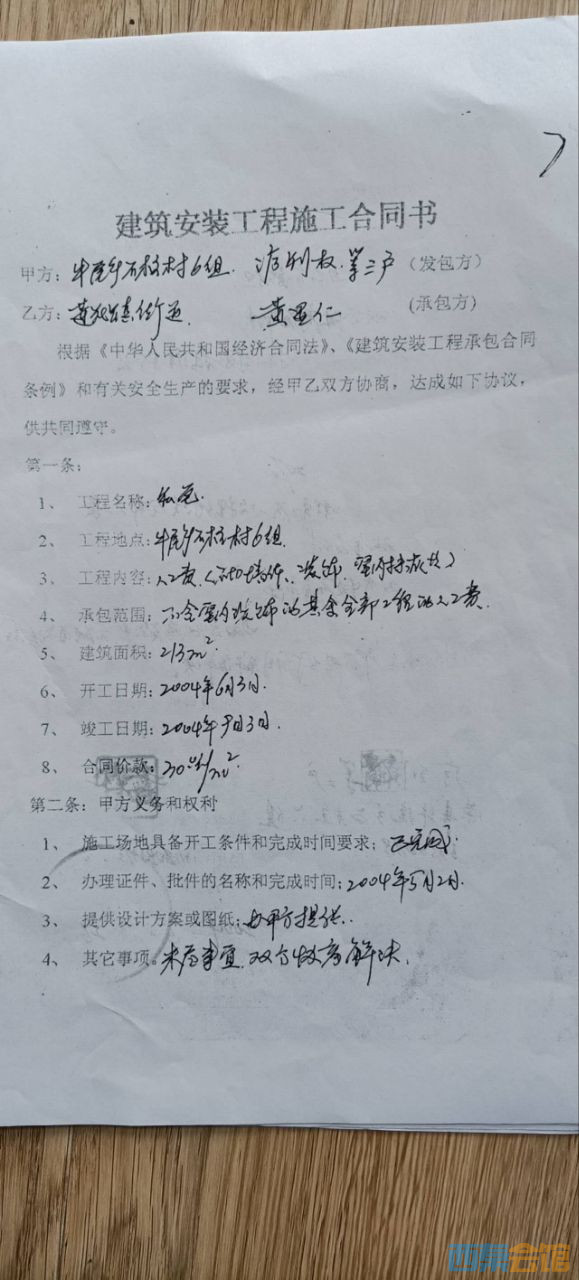 建筑安装工程施工合同书
甲方：牛尾乡石柱村6组. 权. 等三户（发包方）
乙方： 街道. 黄 仁 （承包方）
根据《中华人民共和国经济合同法》、《建筑安装工程承包合同
条例》和有关安全生产的要求，经甲乙双方协商，达成如下协议，
供共同遵守。
第一条：
1、 工程名称：私宅.
2、 工程地点：牛尾乡石柱村6组.
3、 工程内容：人工费（ 装饰、室内 ）
4、 承包范围：不含室内装饰的其余全部工程的人工费.
5、 建筑面积：213m².
6、 开工日期：2004年6月3日.
7、 竣工日期：2004年9月3日.
8、 合同价款： /m²
第二条：甲方义务和权利
1、 施工场地具备开工条件和完成时间要求：已完成.
2、 办理证件、批件的名称和完成时间：2004年5月2日.
3、 提供设计方案或图纸：由甲方提供.
4、 其它事项。未尽事宜.双方协商解决.
西祠会馆